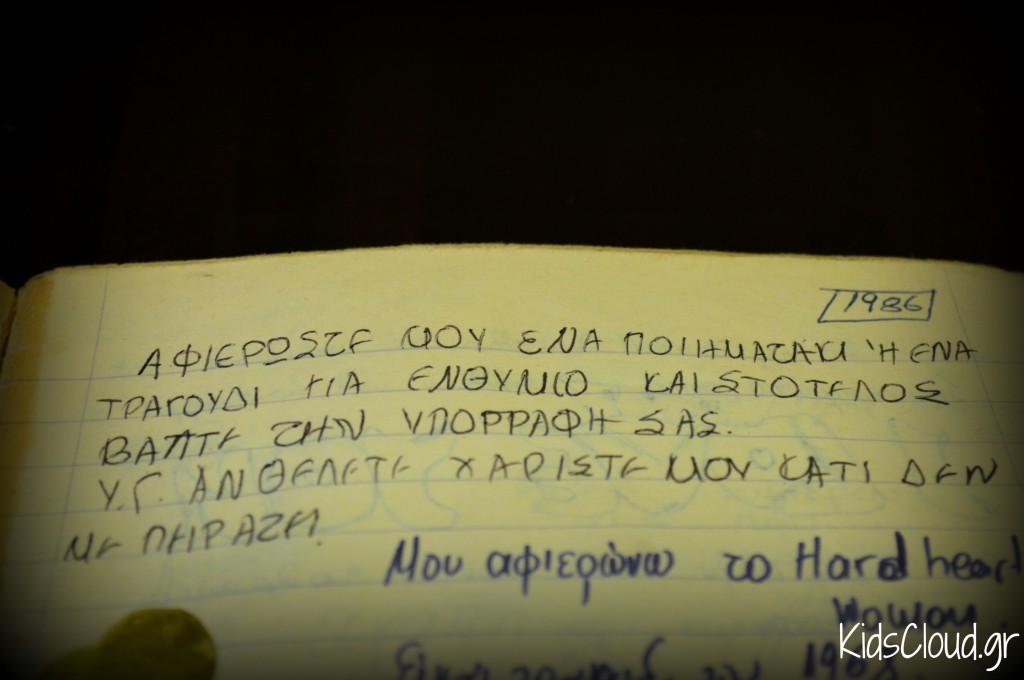 1986
ΑΦΙΕΡΩΣΤΕ ΜΟΥ ΕΝΑ ΠΟΙΗΜΑΤΑΚΙ Ή ΕΝΑ
ΤΡΑΓΟΥΔΙ ΓΙΑ ΕΝΘΥΜΙΟ ΚΑΙ ΣΤΟ ΤΕΛΟΣ
ΒΑΠΤΕ ΤΗΝ ΥΠΟΡΡΑΦΗ ΣΑΣ.
Υ.Γ. ΑΝ ΘΕΛΕΤΕ ΧΑΡΙΣΤΕ ΜΟΥ ΚΑΤΙ ΔΕΝ
ΜΕ ΠΗΡΑΖΕΙ!
Μου αφιερώνω το Hard heart
KidsCloud.gr